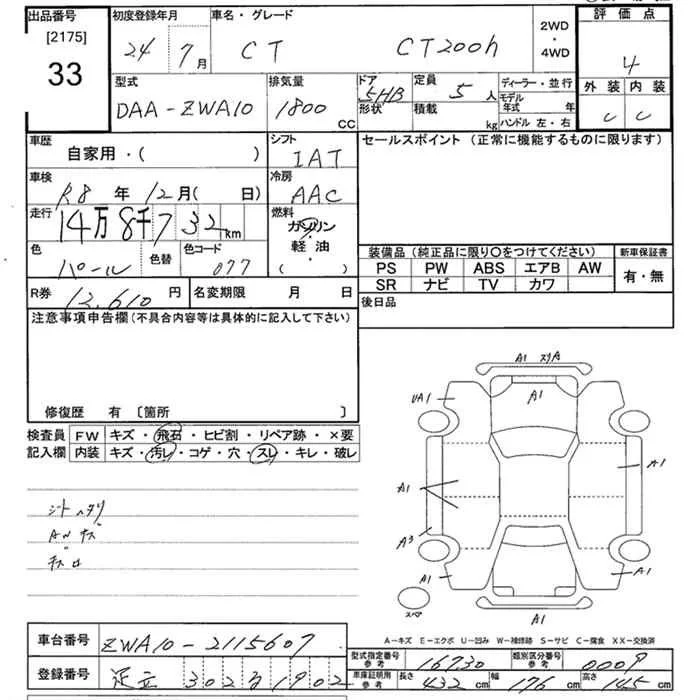 出品番号 初度登録年月 車名・グレード 2WD・4WD 評価点
[2175]
33
24 7月 CT CT200h 4
型式 排気量 ドア形状 定員 ディーラー・並行 外装 内装
DAA-ZWA10 1800cc 5HB 5人 積載 kg モデル年式 年 ハンドル左・右 C C
車歴 シフト セールスポイント (正常に機能するものに限ります)
自家用・( ) IAT
車検 冷房
R8年 12月( 日) AAC
走行 燃料
14万8千732km ガソリン
軽油
( )
色 色替 色コード 装備品 (純正品に限り○をつけてください) 新車保証書
パール 077 PS PW ABS エアB AW 有・無
SR ナビ TV カワ
R券 12,610円 名変期限 月 日 後日品
注意事項申告欄 (不具合内容等は具体的に記入して下さい)
修復歴 有 〔箇所 〕
検査員 FW キズ・飛石・ヒビ割・リペア跡・×要
記入欄 内装 キズ・汚レ・コゲ・穴・スレ・キレ・破レ
シートヘタリ
ANキズ
A1 スリA
A1
UA1
A1
A1
A3
A1
A1
スペア
A1
A-キズ E-エクボ U-凹み W-補修跡 S-サビ C-腐食 XX-交換済
車台番号 ZWA10-2115607
型式指定番号 参考 16730 類別区分番号 参考 0009
登録番号 足立 302 る 1902
車庫証明用 参考 長さ 432cm 幅 176cm 高さ 145cm